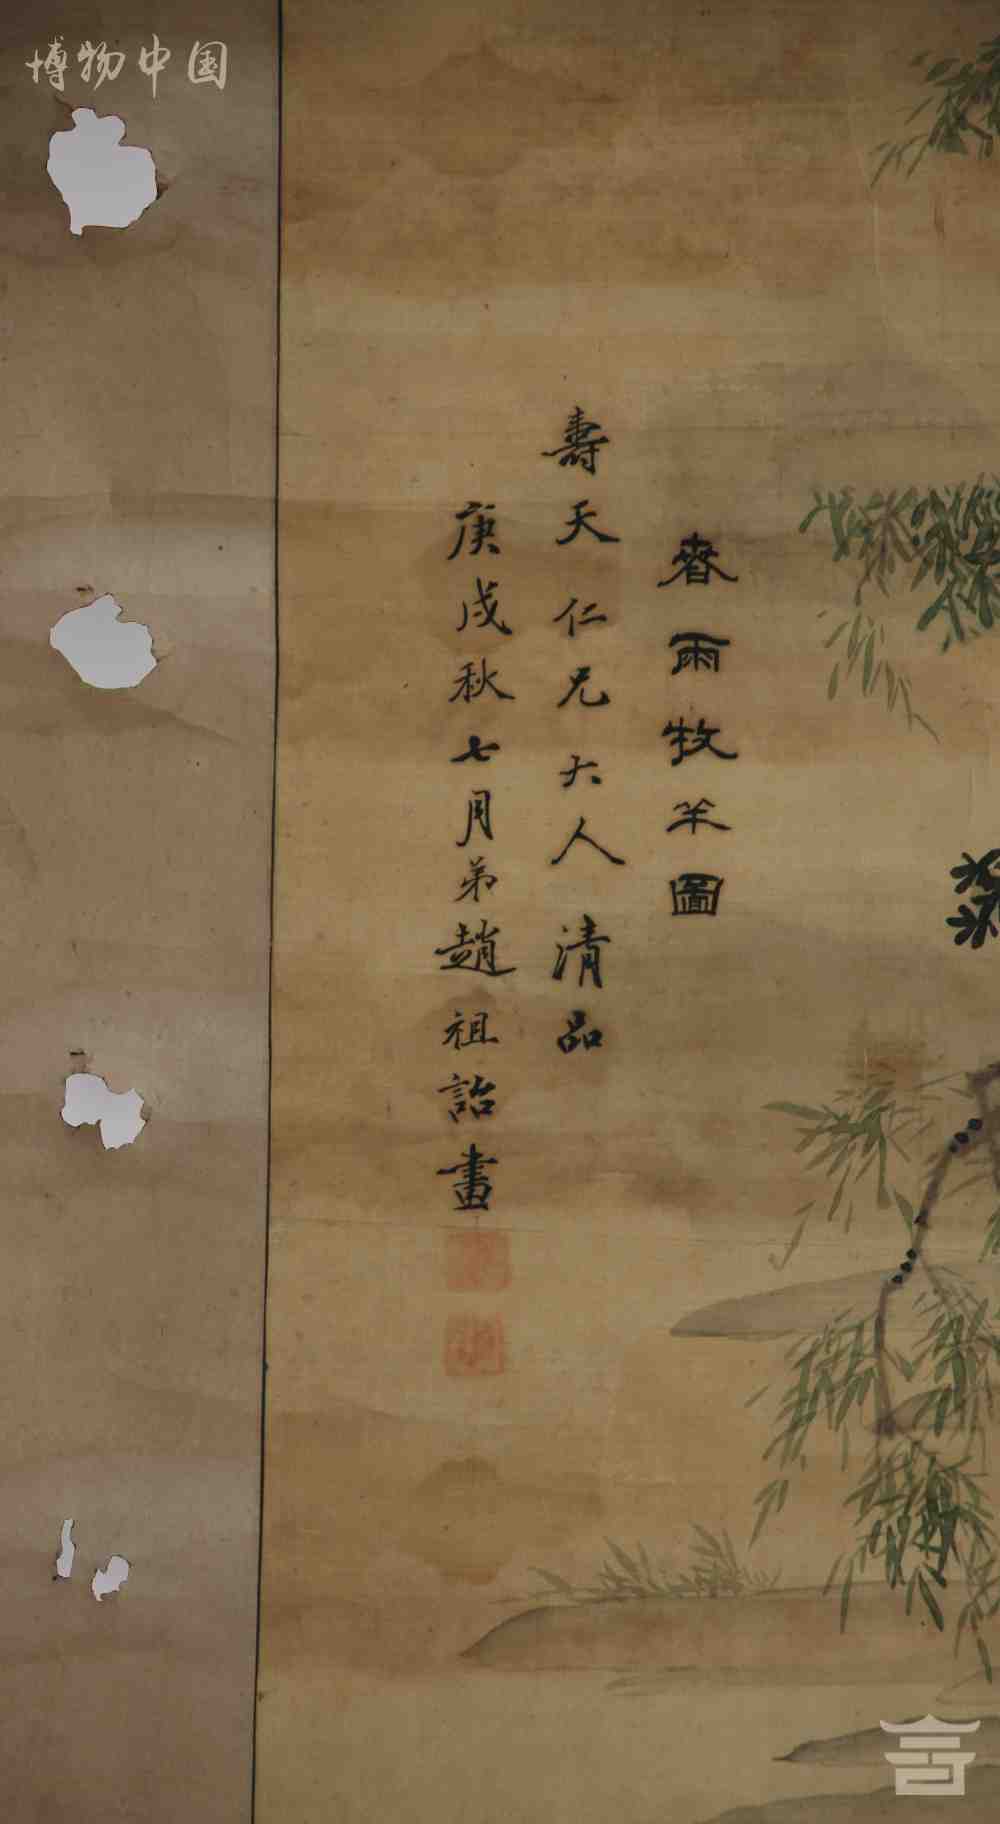 博物中国
春雨牧羊圖
壽天仁兄大人清品
庚戌秋七月弟趙祖詒畫